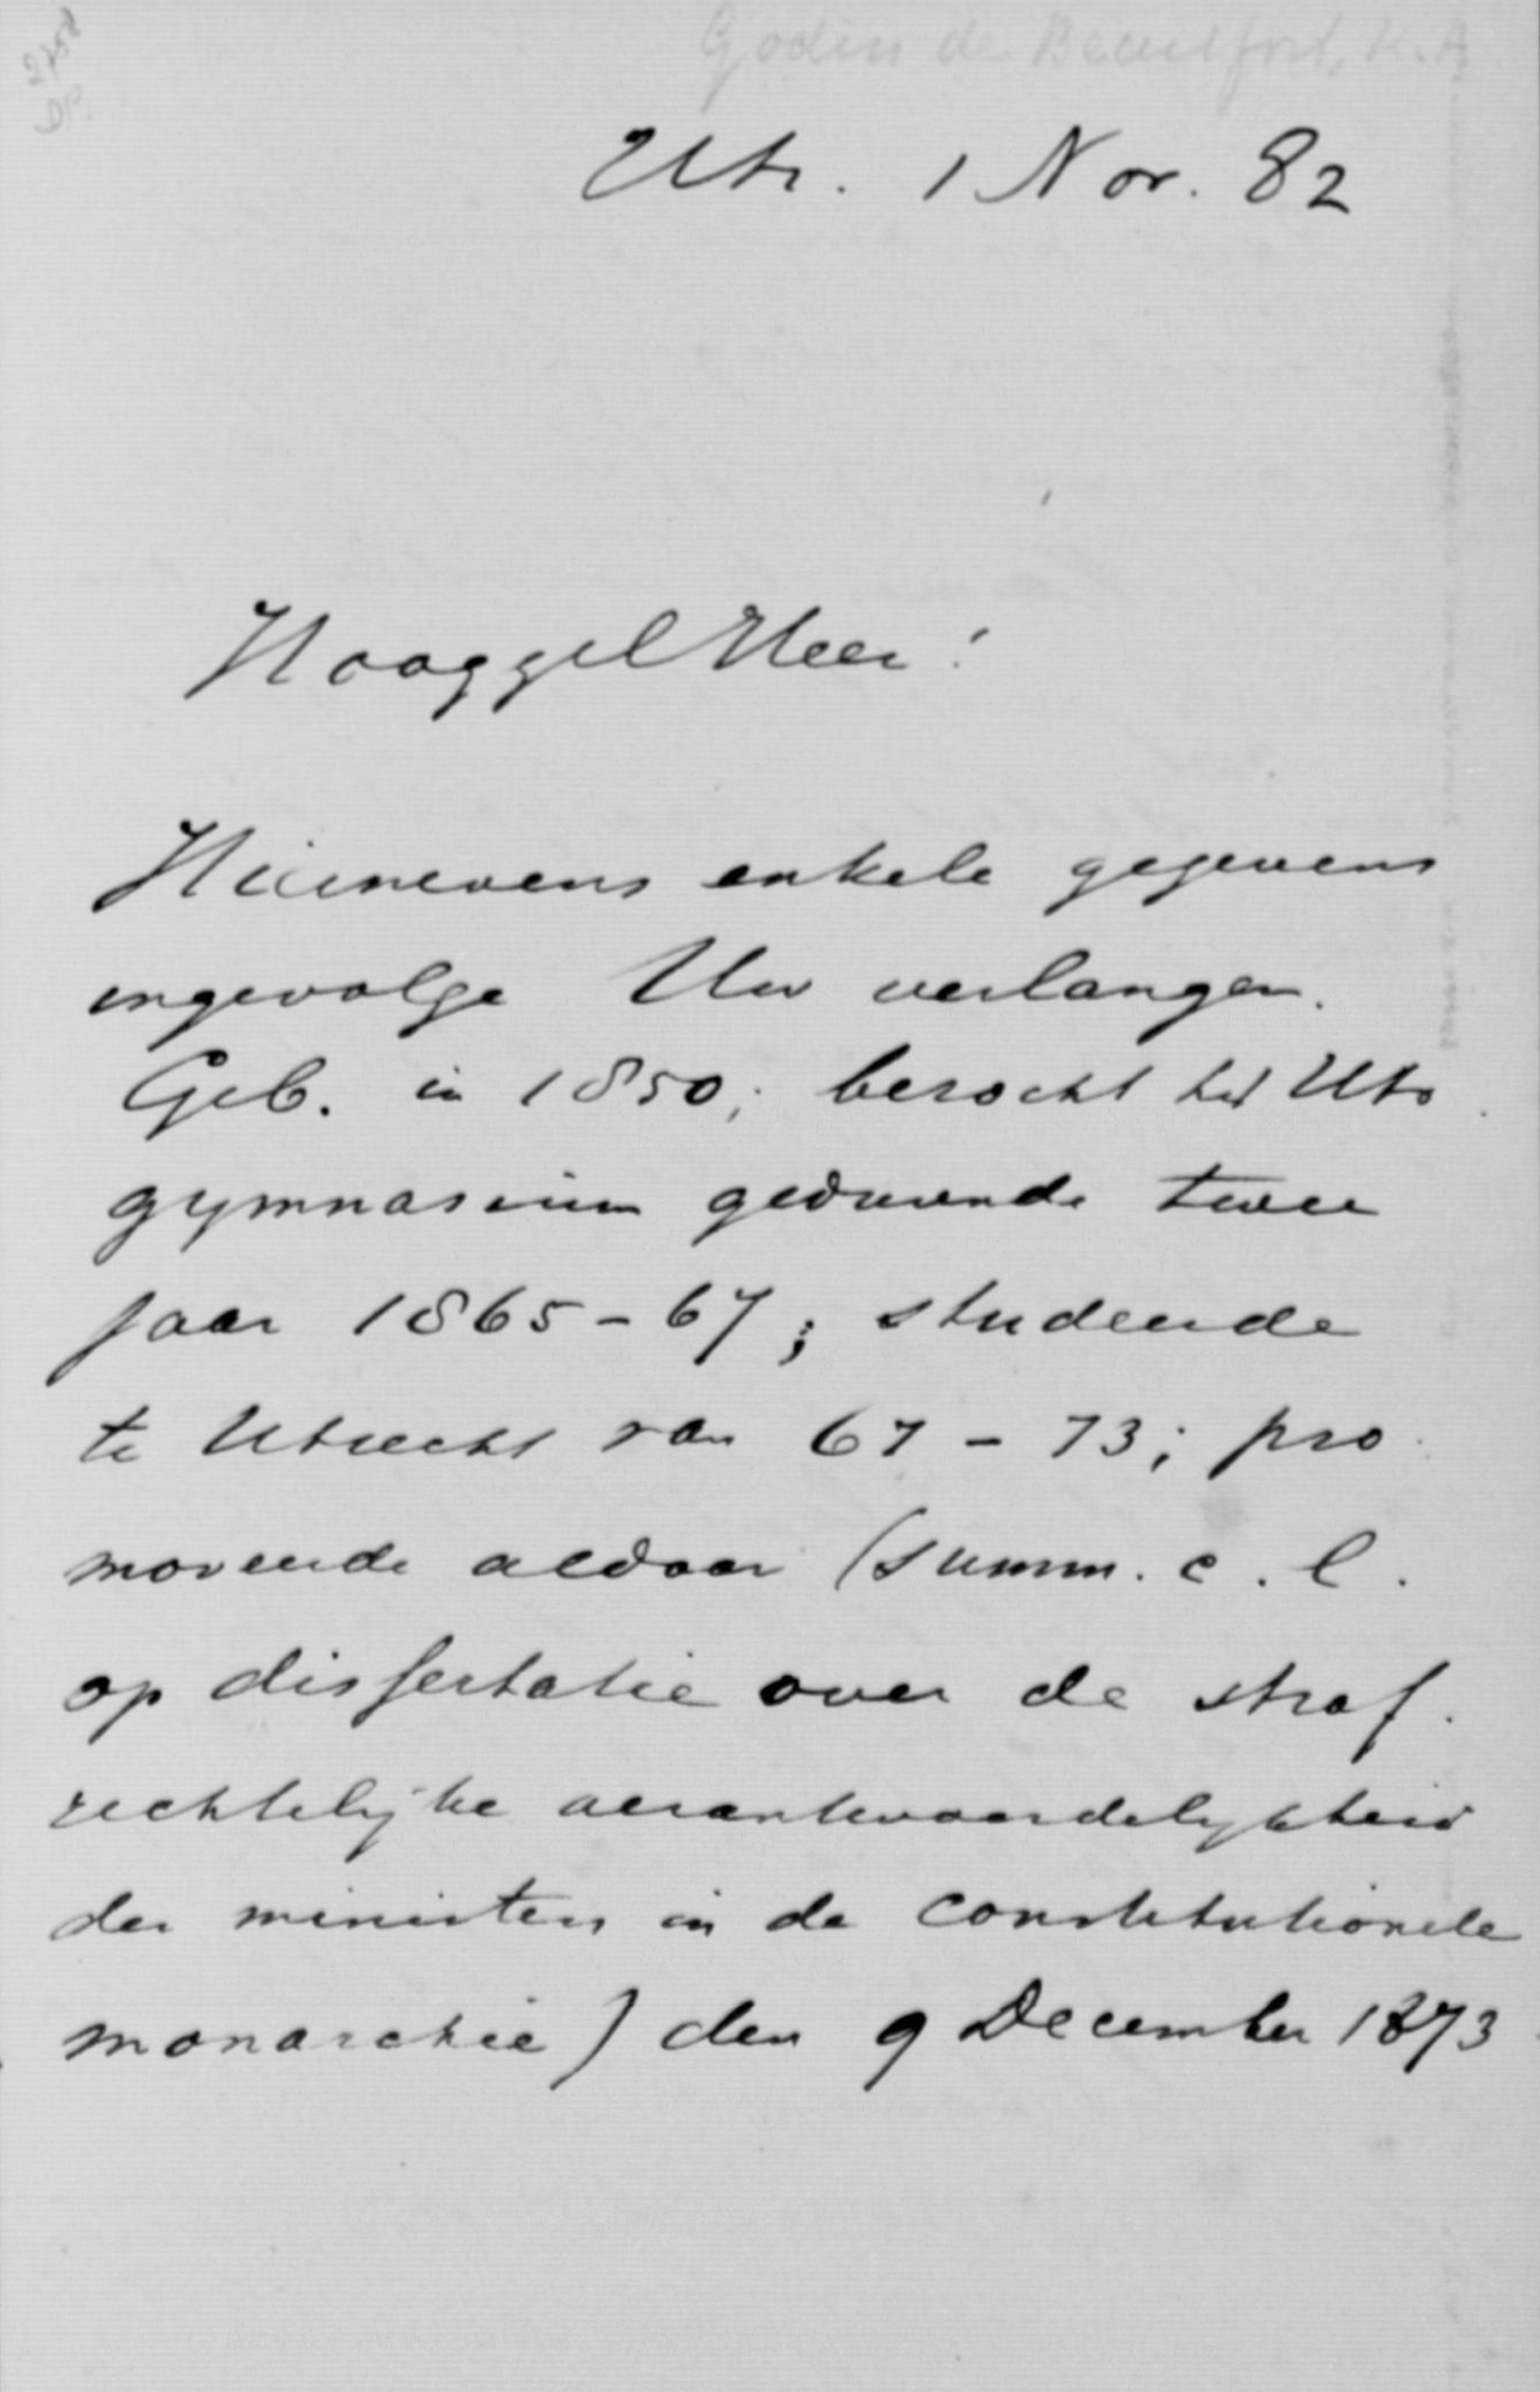 Godin de Beaufort, K.A
Utr. 1 Nov. 82
Hooggel Heer!
Hiernevens enkele gegevens
ingevolge Uw verlangen.
Geb. in 1850; bezocht het Utr
gymnasium gedurende twee
jaar 1865-67; studeerde
te Utrecht van 67-73; pro
moveerde aldaar (summ. c. l.
op dissertatie over de straf.
rechtelijke verantwoordelijkheid
der ministers in de constitutionele
monarchie) den 9 December 1873